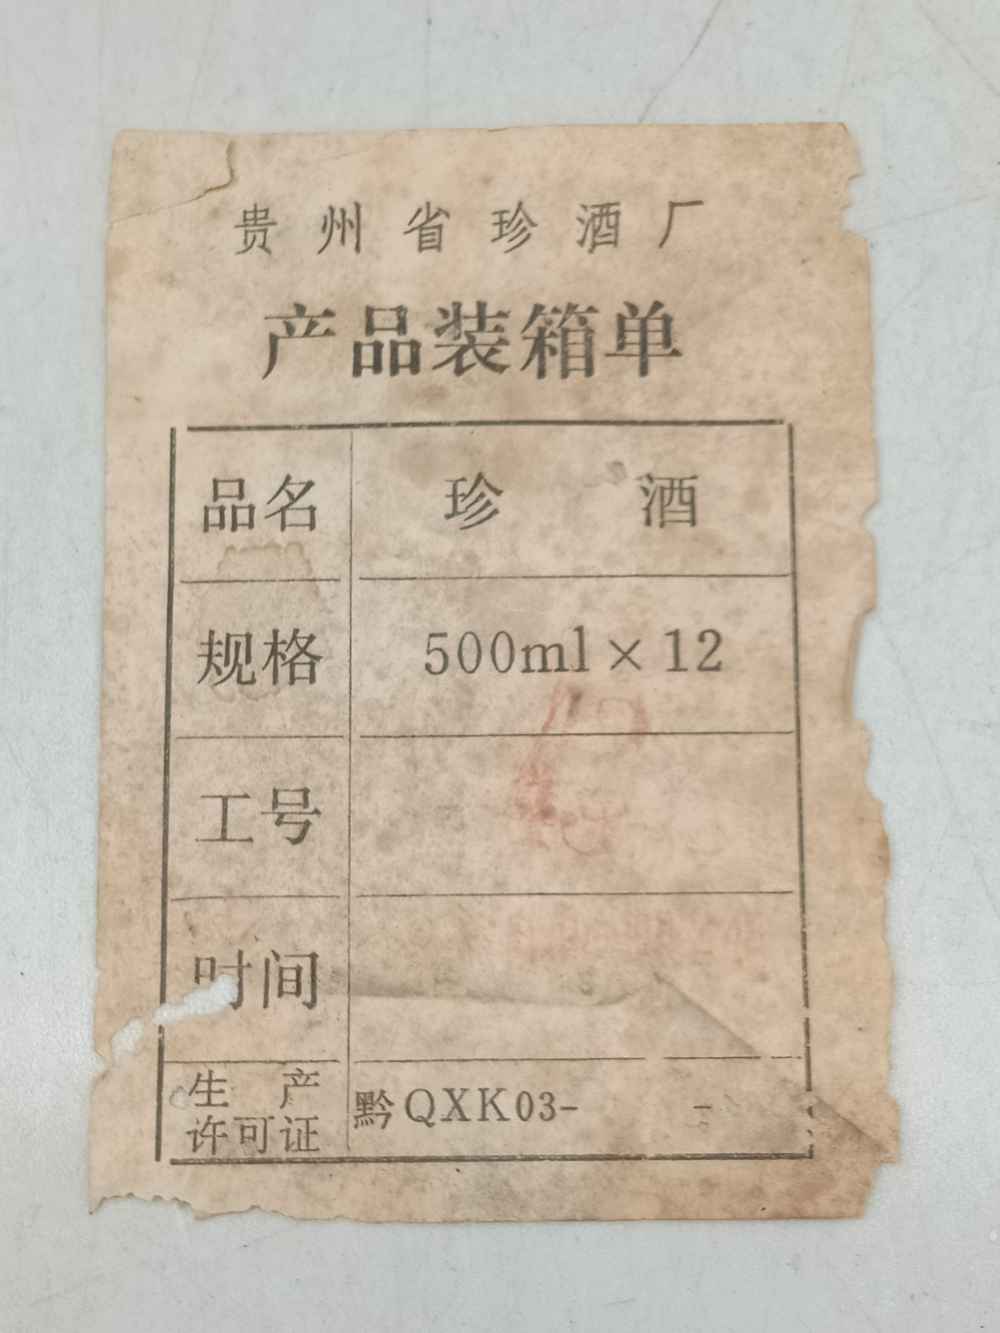 贵州省珍酒厂
产品装箱单
品名 珍 酒
规格 500ml×12
工号
时间
生 产
许可证 黔QXK03- -